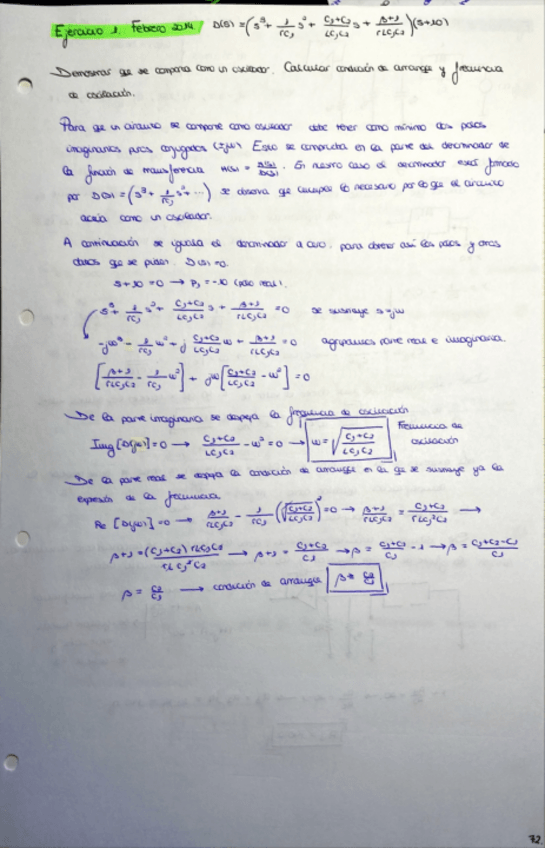 Ejercicio 1. Febrero 2014. D(s) = (s³ + 1/rC₁ s² + C₁+C₂/LC₁C₂ s + β+1/rLC₁C₂)(s+10)
Demostrar que se comporta como un oscilador. Calcular condición de arranque y frecuencia
de oscilación.
Para que un circuito se comporte como oscilador debe tener como mínimo dos polos
imaginarios puros conjugados (±jω). Esto se comprueba en la parte del denominador de
la función de transferencia H(s) = N(s)/D(s). En nuestro caso el denominador está formado
por D(s) = (s³ + 1/rC₁ s² + ...) se observa que cumple lo necesario por lo que el circuito
actúa como un oscilador.
A continuación se iguala el denominador a cero para obtener así los polos y otros
datos que se piden. D(s) = 0.
s+10 = 0 → P₁ = -10 (polo real).
s³ + 1/rC₁ s² + C₁+C₂/LC₁C₂ s + β+1/rLC₁C₂ = 0 se sustituye s=jω
-jω³ - 1/rC₁ ω² + j C₁+C₂/LC₁C₂ ω + β+1/rLC₁C₂ = 0 agrupamos parte real e imaginaria.
[β+1/rLC₁C₂ - 1/rC₁ ω²] + jω [C₁+C₂/LC₁C₂ - ω²] = 0
De la parte imaginaria se despeja la frecuencia de oscilación
Img [D(jω)] = 0 → C₁+C₂/LC₁C₂ - ω² = 0 → ω = √(C₁+C₂/LC₁C₂) Frecuencia de
oscilación
De la parte real se despeja la condición de arranque en la que se sustituye ya la
expresión de la frecuencia
Re [D(jω)] = 0 → β+1/rLC₁C₂ - 1/rC₁ (√(C₁+C₂/LC₁C₂))² = 0 → β+1/rLC₁C₂ = C₁+C₂/rLC₁²C₂ →
β+1 = (C₁+C₂) rLC₁C₂/rLC₁²C₂ → β+1 = C₁+C₂/C₁ → β = C₁+C₂/C₁ - 1 → β = C₁+C₂-C₁/C₁
β = C₂/C₁ → condición de arranque β C₂/C₁
72